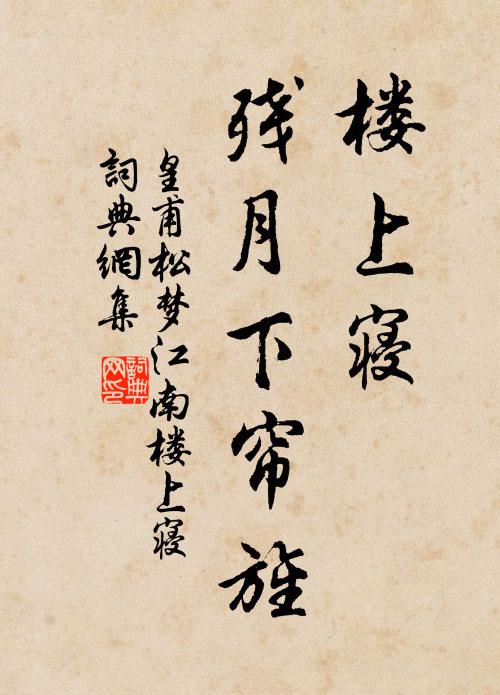 楼上寝
残月下帘旌
皇甫松梦江南楼上寝
詞典網集
詞典
网印